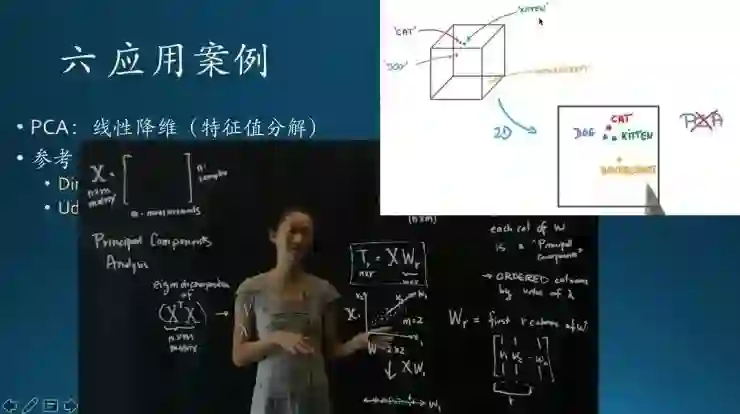 六 应用案例
• PCA：线性降维（特征值分解）
• 参考
• Di
• Ud
'KITTEN'
'CAT'
'DOG'
2D
CAT
DOG
KITTEN
X =
n×m
matrix
n
samples
m - measurements
Principal Components
Analysis
eigendecomposition
of
(XᵀX)
→
m×m
matrix
Tᵣ = X Wᵣ
n×r
m×r
(n×m)
x₂
w₁
X:
m=2
x₁
W 2×2
↓ XW₁
w₁
each col of W
is a "Principal
Component"
→ ORDERED columns
by value of λ
Wᵣ = first r columns of W
r